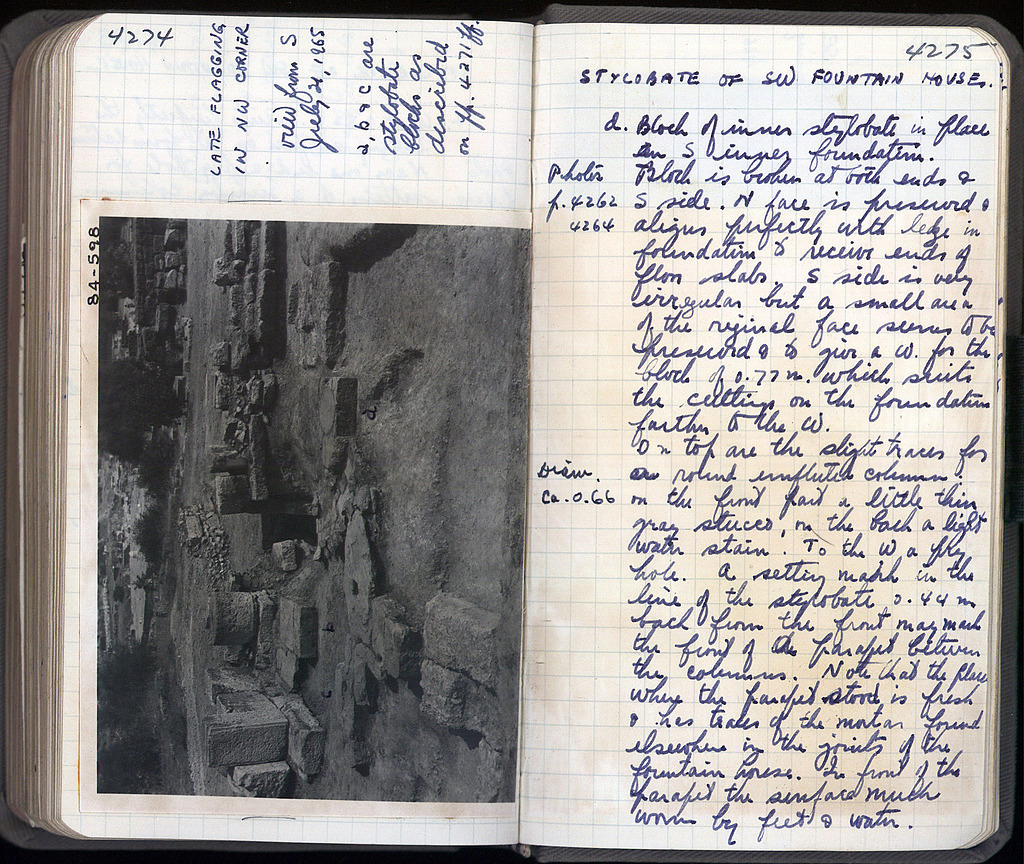 4274
LATE FLAGGING
IN NW CORNER
view from S
July 21, 1965
a, b & c are
stylobate
blocks as
described
on pp. 4271 ff.
84-598
a
b
c
4275
STYLOBATE OF SW FOUNTAIN HOUSE.
d. Block of inner stylobate in place
on S inner foundation.
Photos
p. 4262
4264
Block is broken at both ends &
S side. N face is preserved &
aligns perfectly with ledge in
foundation to receive ends of
floor slabs. S side is very
irregular but a small area
of the original face seems to be
preserved & to give a W. for the
block of 0.77 m. which suits
the cutting on the foundation
farther to the W.
On top are the slight traces for
Diam.
ca. 0.66
a round unfluted column.
on the front part a little thin
gray stucco, on the back a light
water stain. To the W a pry
hole. A setting mark in the
line of the stylobate 0.44 m
back from the front may mark
the front of the parapet between
the columns. Note that the place
where the parapet stood is fresh
& has traces of the mortar found
elsewhere in the joints of the
fountain house. In front of the
parapet the surface much
worn by feet & water.